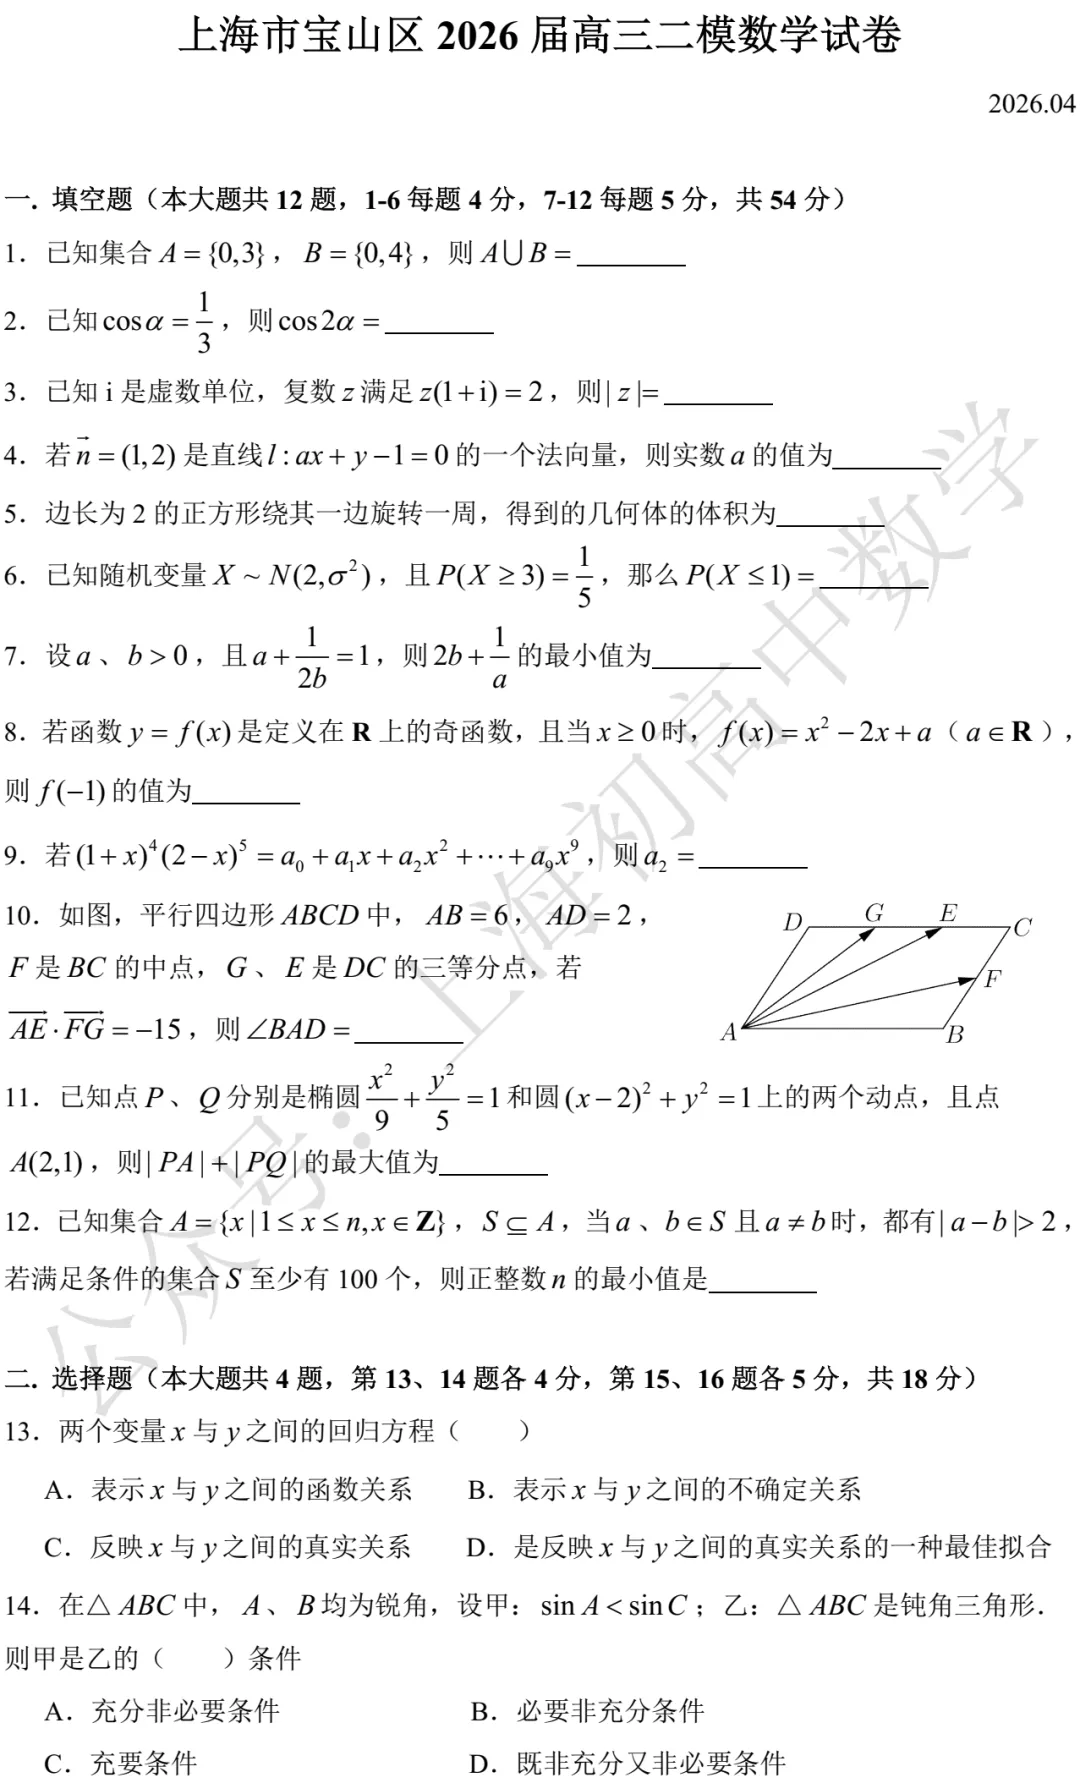 上海市宝山区 2026 届高三二模数学试卷
2026.04
一. 填空题（本大题共 12 题，1-6 每题 4 分，7-12 每题 5 分，共 54 分）
1. 已知集合 A = {0,3}，B = {0,4}，则 A∪B = ________
2. 已知 cosα = 1/3，则 cos2α = ________
3. 已知 i 是虚数单位，复数 z 满足 z(1+i) = 2，则 | z |= ________
4. 若 n⃗ = (1,2) 是直线 l : ax + y − 1 = 0 的一个法向量，则实数 a 的值为________
5. 边长为 2 的正方形绕其一边旋转一周，得到的几何体的体积为________
6. 已知随机变量 X ~ N(2,σ²)，且 P(X ≥ 3) = 1/5，那么 P(X ≤ 1) = ________
7. 设 a、b > 0，且 a + 1/(2b) = 1，则 2b + 1/a 的最小值为________
8. 若函数 y = f(x) 是定义在 R 上的奇函数，且当 x ≥ 0 时，f(x) = x² − 2x + a（a ∈ R），
则 f(−1) 的值为________
9. 若 (1+x)⁴(2−x)⁵ = a₀ + a₁x + a₂x² + ⋯ + a₉x⁹，则 a₂ = ________
10. 如图，平行四边形 ABCD 中，AB = 6，AD = 2，
F 是 BC 的中点，G、E 是 DC 的三等分点，若
AE⃗ · FG⃗ = −15，则 ∠BAD = ________
D G E C
F
A B
11. 已知点 P、Q 分别是椭圆 x²/9 + y²/5 = 1 和圆 (x−2)² + y² = 1 上的两个动点，且点
A(2,1)，则 | PA | + | PQ | 的最大值为________
12. 已知集合 A = {x | 1 ≤ x ≤ n, x ∈ Z}，S ⊆ A，当 a、b ∈ S 且 a ≠ b 时，都有 | a − b |> 2，
若满足条件的集合 S 至少有 100 个，则正整数 n 的最小值是________
二. 选择题（本大题共 4 题，第 13、14 题各 4 分，第 15、16 题各 5 分，共 18 分）
13. 两个变量 x 与 y 之间的回归方程（　　）
A. 表示 x 与 y 之间的函数关系 B. 表示 x 与 y 之间的不确定关系
C. 反映 x 与 y 之间的真实关系 D. 是反映 x 与 y 之间的真实关系的一种最佳拟合
14. 在△ ABC 中，A、B 均为锐角，设甲：sin A < sin C；乙：△ ABC 是钝角三角形.
则甲是乙的（　　）条件
A. 充分非必要条件 B. 必要非充分条件
C. 充要条件 D. 既非充分又非必要条件
公众号：上海初高中数学